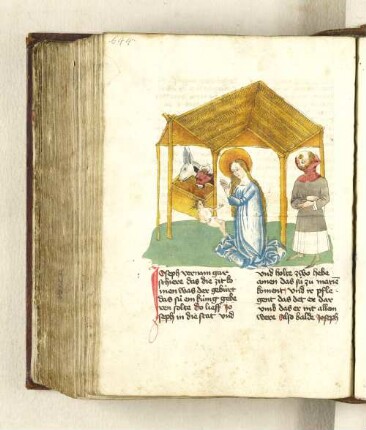 Joseph vernam gar
schiere das die zit ko
men was der geburt
das sú ein kúng gebe
ren solte do lieff Jo
seph in die stat und
und holte zwo hebe
amen das sú zu marien
koment und ir pfle-
gent das det er dar
umb das er nit allein
were Also balde joseph